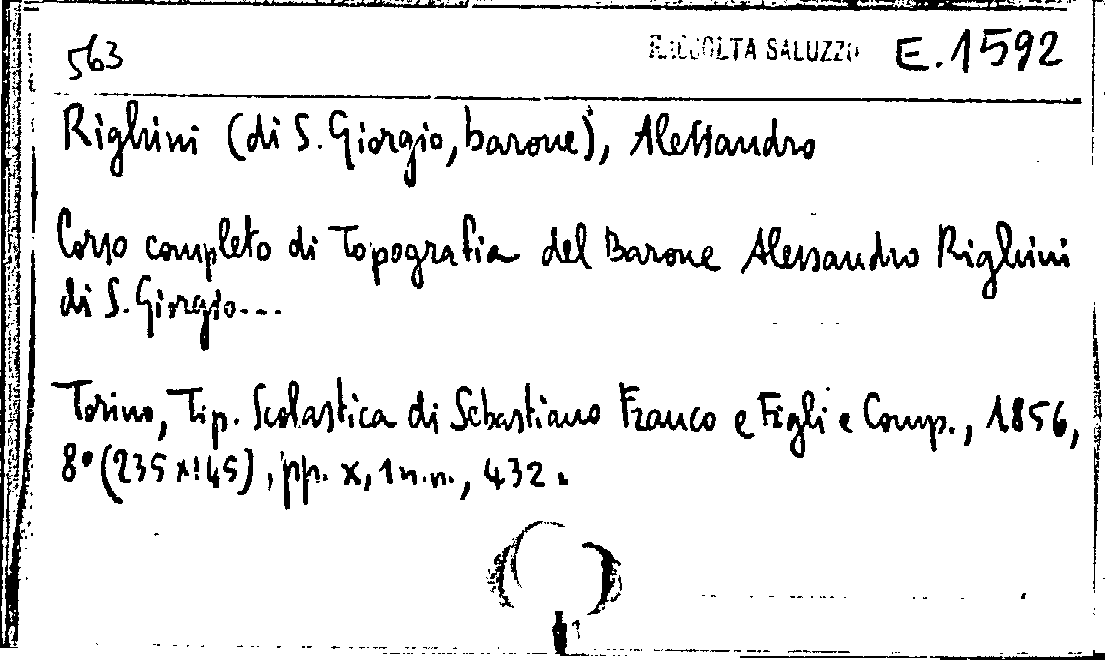 563 RACCOLTA SALUZZO E.1592
Righini (di S. Giorgio, barone), Alessandro
Corso completo di Topografia del Barone Alessandro Righini
di S. Giorgio...
Torino, Tip. Scolastica di Sebastiano Franco e Figli e Comp., 1856,
8° (235x145), pp. x, 1 n.n., 432.